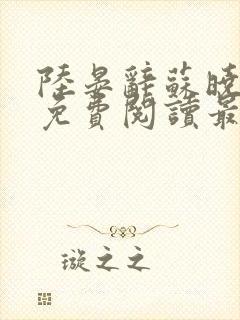 陸晏辭蘇曉
免費閱讀最
璇之之